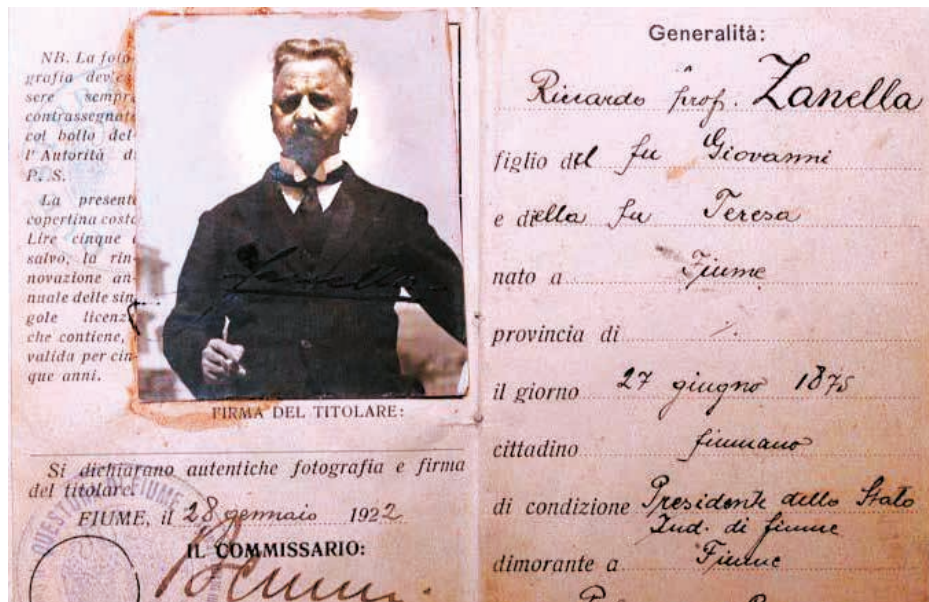 NB. La foto-
grafia dev'es-
sere sempre
contrassegnata
col bollo del-
l'Autorità di
P. S.
La presente
copertina costa
Lire cinque e
salvo, la rin-
novazione an-
nuale delle sin-
gole licenze
che contiene, è
valida per cin-
que anni.
Zanella
FIRMA DEL TITOLARE:
Si dichiarano autentiche fotografia e firma
del titolare.
FIUME, il 28 gennaio 1922
IL COMMISSARIO:
QUESTURA DI FIUME
Generalità:
Riccardo prof. Zanella
figlio del fu Giovanni
e della fu Teresa
nato a Fiume
provincia di
il giorno 27 giugno 1875
cittadino fiumano
di condizione Presidente dello Stato
Ind. di fiume
dimorante a Fiume